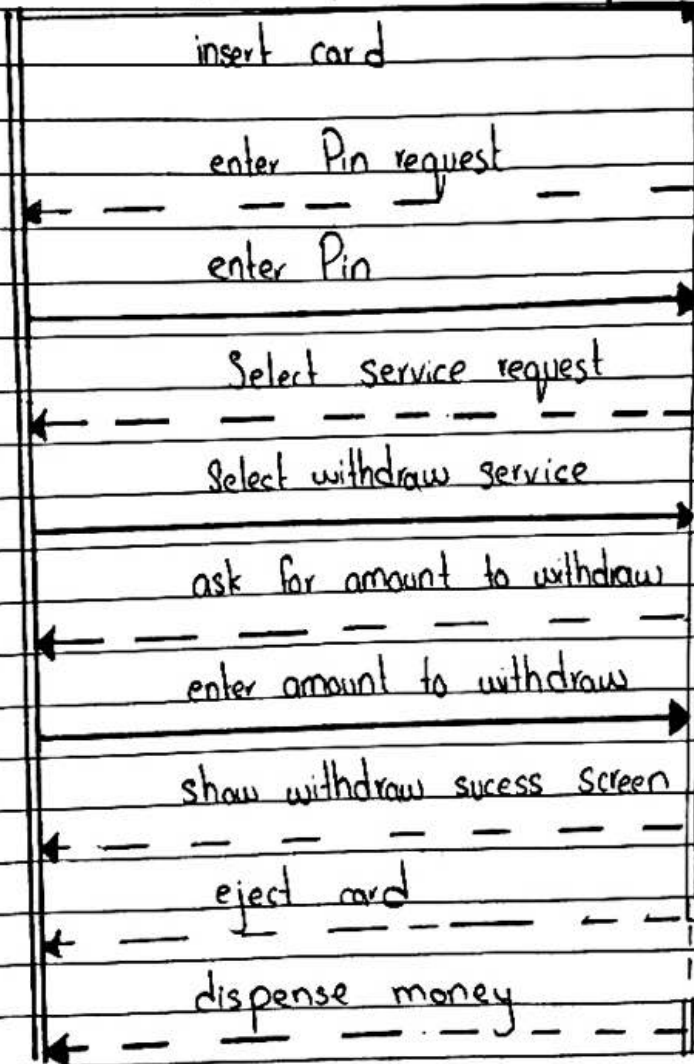 insert card
enter Pin request
enter Pin
Select service request
Select withdraw service
ask for amount to withdraw
enter amount to withdraw
show withdraw sucess screen
eject card
dispense money